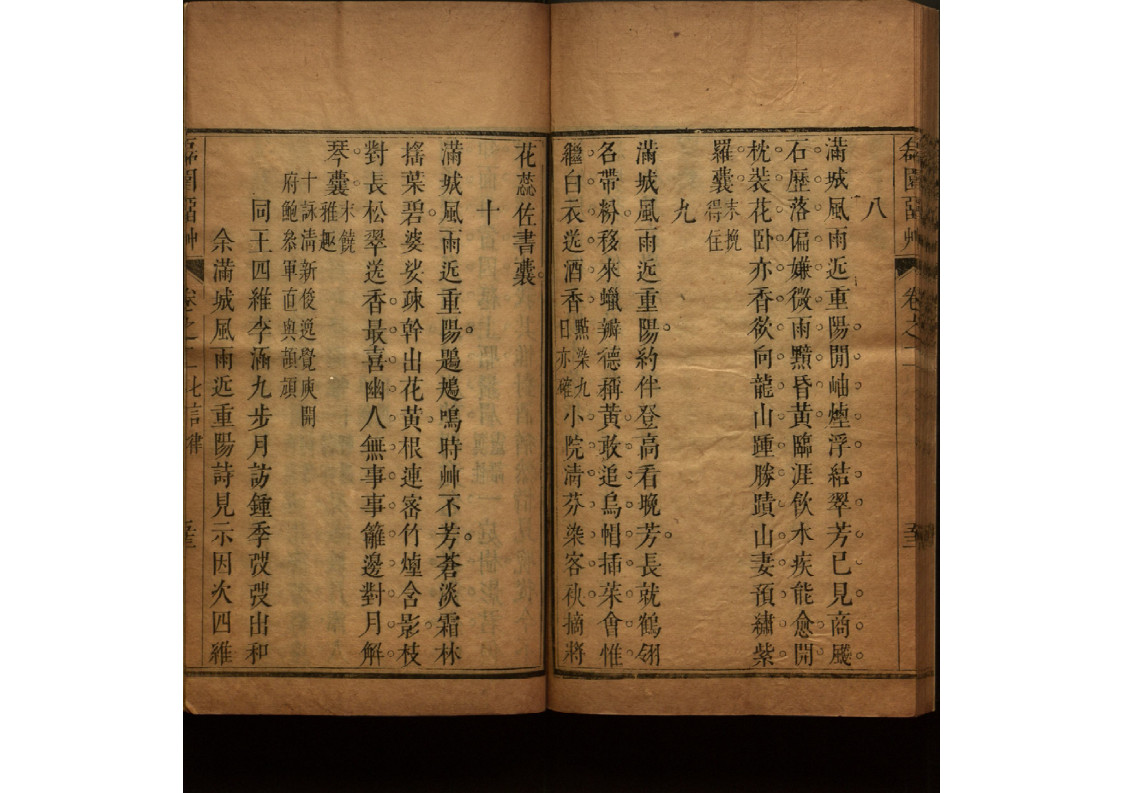 八
滿城風雨近重陽閒岫煙浮結翠芳已見商飈
石歷落偏嫌微雨黦昏黃臨涯飲水疾能愈開
枕裝花卧亦香欲向龍山踵勝蹟山妻預繡紫
羅囊末挽得住
九
滿城風雨近重陽約伴登高看晚芳長就鶴翎
名帶粉移來蠟瓣德稱黃敢追烏帽插茱會惟
繼白衣送酒香點染九日亦確小院清芬染客袂摘將
花蕊佐書囊
十
滿城風雨近重陽鶗鴂鳴時艸不芳蒼淡霜林
搖葉碧婆娑疎幹出花黃根連密竹煙含影枝
對長松翠送香最喜幽人無事事籬邊對月解
琴囊末饒雅趣
十詠清新俊逸覺庾開
府鮑叅軍直與頡頏
同王四維李涵九步月訪鍾季弢弢出和
余滿城風雨近重陽詩見示因次四維
卷之 七言律